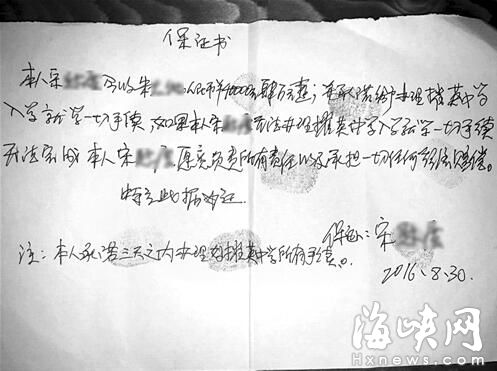 保证书
本人宋 今收朱 人民币40000元肆万元整；并承诺给办理 英中学
入学就学一切手续，如果本人宋 无法办理 英中学入学就学一切手续
无法完成 本人宋 愿意负责所有责任以及承担一切任何 赔偿。
特立此据为证
保证：宋
注：本人承诺三天之内办理好 英中学所有手续。
2016.8.30.
海峡网
Hxnews.com